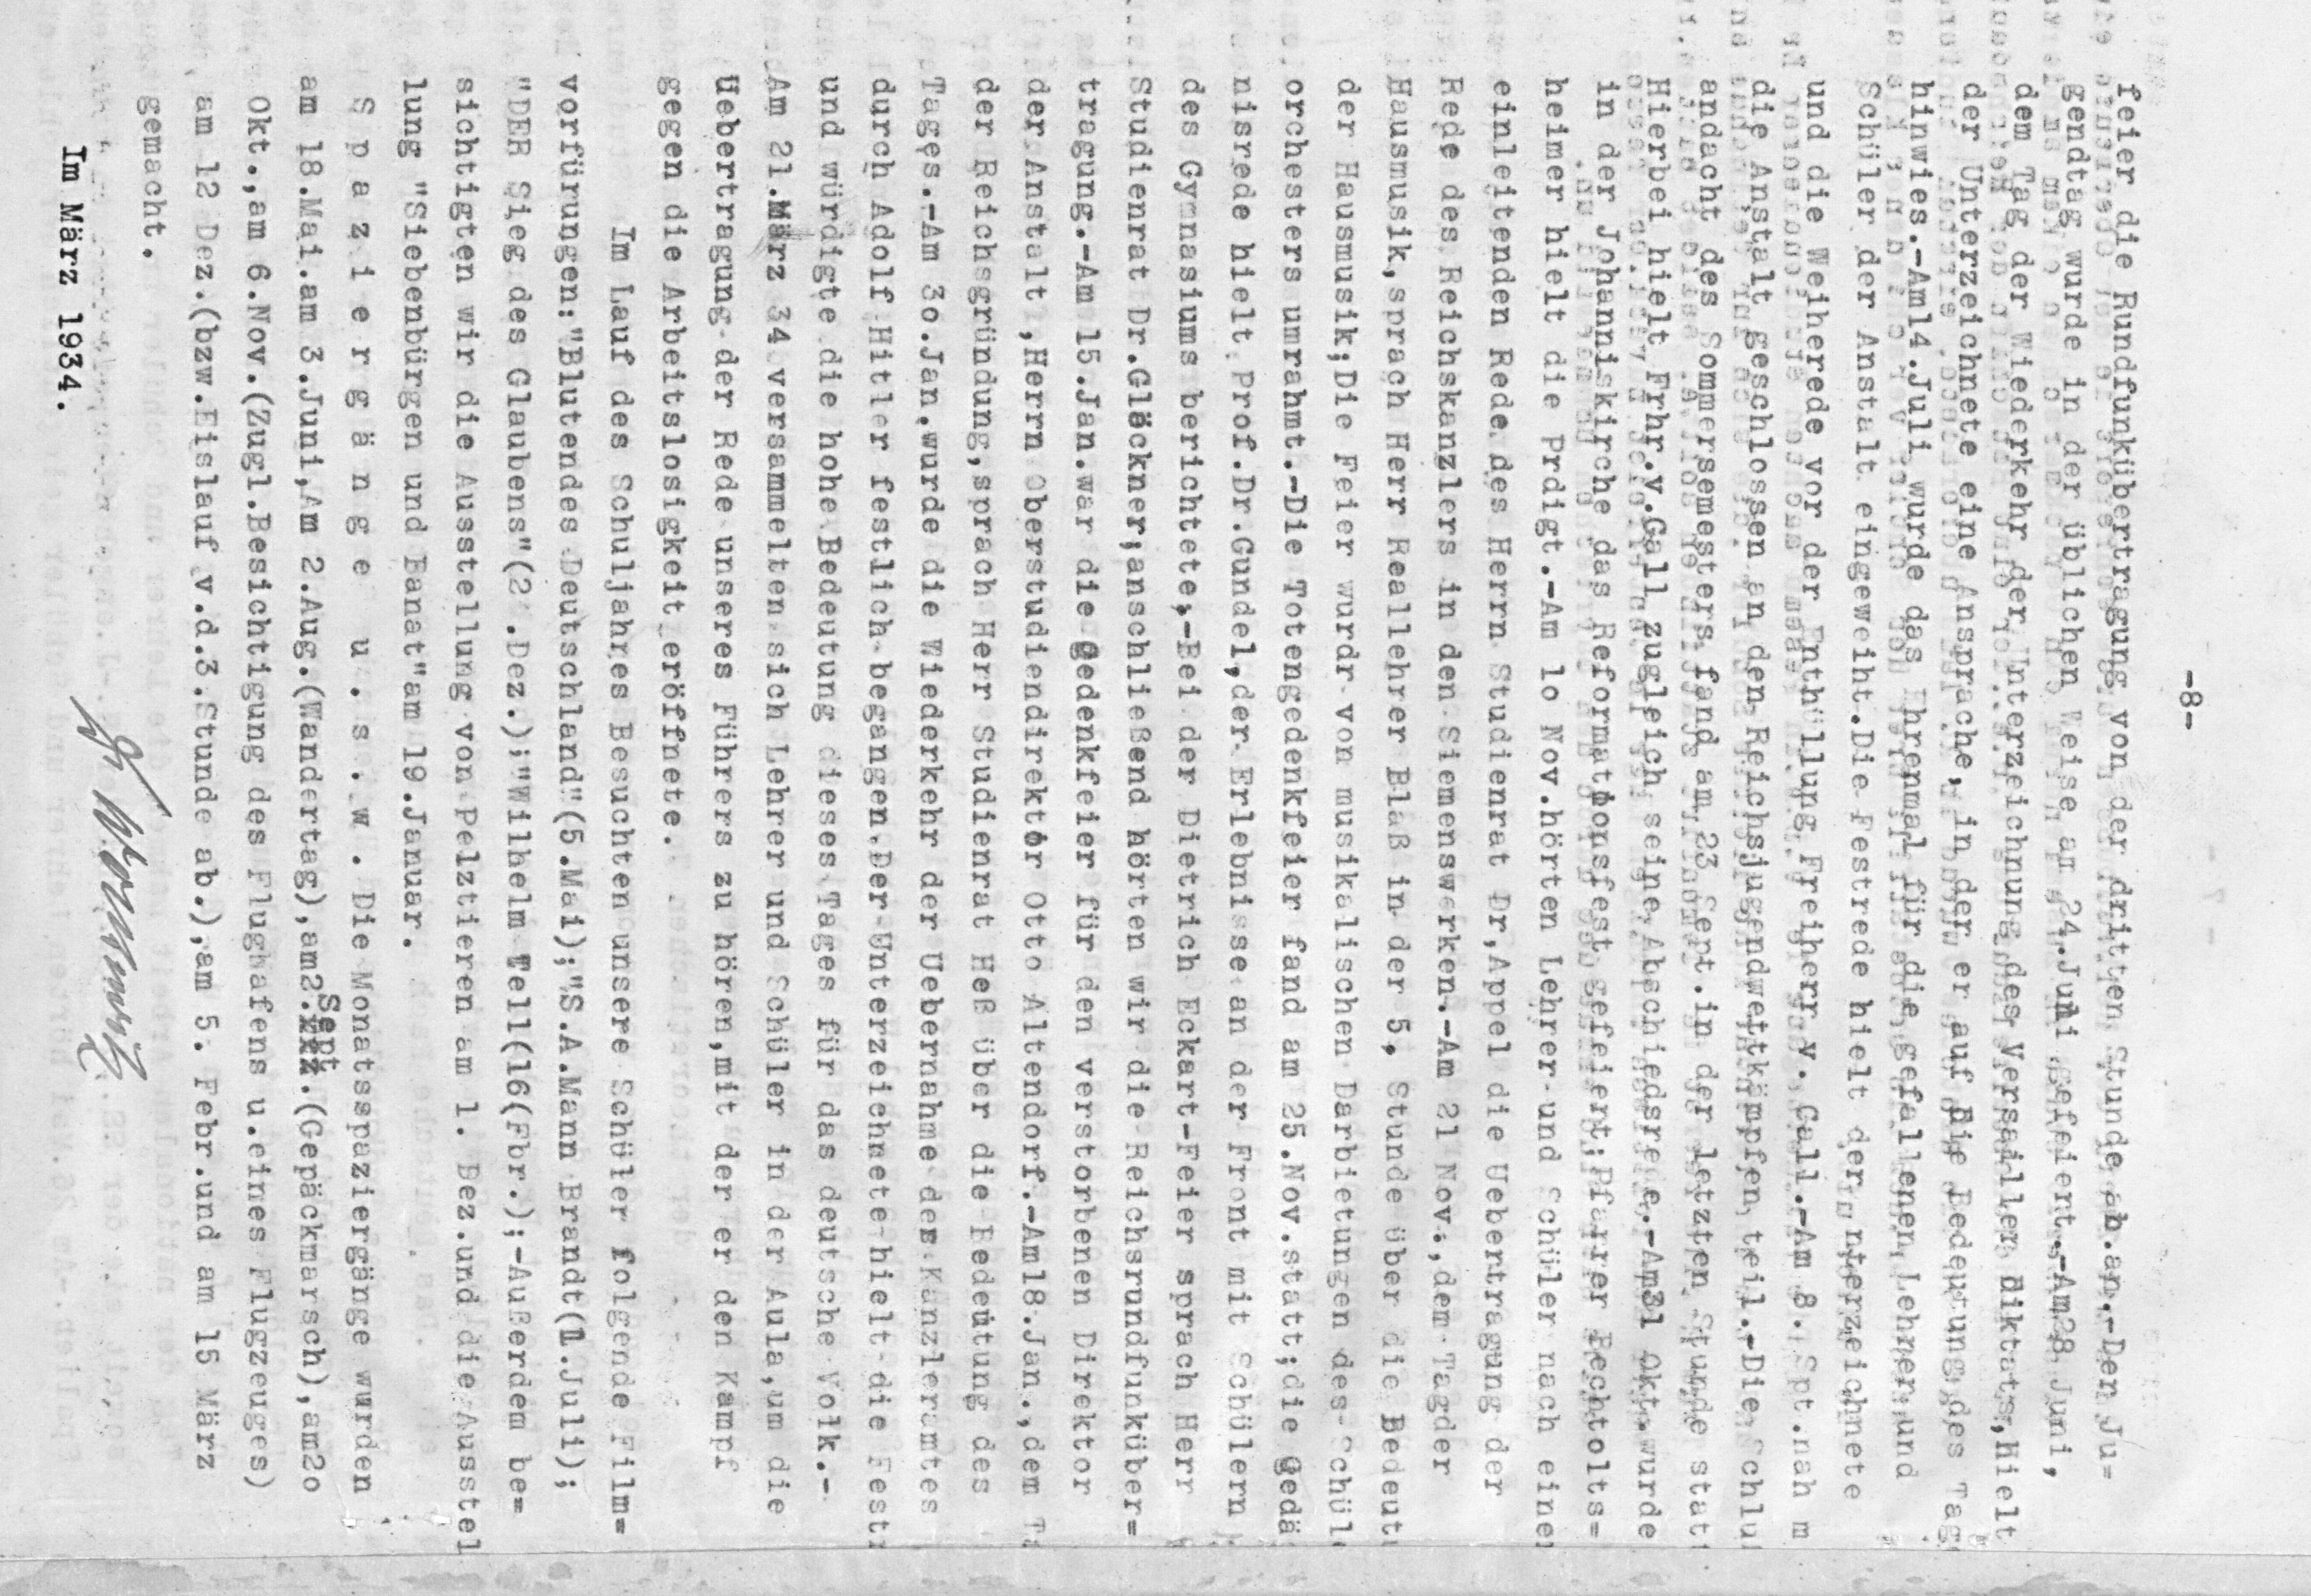 -8-
feier die Rundfunkübertragung von der dritten Stunde ab.an.-Der Ju=
gendtag wurde in der üblichen Weise am 24.Juni gefeiert.-Am28.Juni,
dem Tag der Wiederkehr der Unterzeichnung des Versailler Diktats,hielt
der Unterzeichnete eine Ansprache,in der er auf die Bedeutung des Tag
hinwies.-Am14.Juli wurde das Ehrenmal für die gefallenen Lehrer und
Schüler der Anstalt eingeweiht.Die Festrede hielt der nterzeichnete
und die Weiherede vor der Enthüllung Freiherr v. Gall.-Am 8. Spt.nah m
die Anstalt geschlossen an den Reichsjugendwettkämpfen teil.-Die Schlu
andacht des Sommersemesters fand am 23 Sept.in der letzten Stunde stat
Hierbei hielt Frhr.v.Gall zugleich seine Abschiedsrede.-Am31 Okt.wurde
in der Johanniskirche das Reformationsfest gefeiert;Pfarrer Bechtolts=
heimer hielt die Prdigt.-Am 1o Nov.hörten Lehrer und Schüler nach einer
einleitenden Rede des Herrn Studienrat Dr,Appel die Uebertragung der
Rede des Reichskanzlers in den Siemenswerken.-Am 21 Nov.,dem Tagder
Hausmusik,sprach Herr Reallehrer Blaß in der 5. Stunde über die Bedeut
der Hausmusik;Die Feier wurdr von musikalischen Darbietungen des Schül
orchesters umrahmt.-Die Totengedenkfeier fand am 25.Nov.statt;die Gedä
nisrede hielt Prof.Dr.Gundel,der Erlebnisse an der Front mit Schülern
des Gymnasiums berichtete,-Bei der Dietrich Eckart-Feier sprach Herr
Studienrat Dr.Glöckner;anschließend hörten wir die Reichsrundfunküber=
tragung.-Am 15.Jan.war die Gedenkfeier für den verstorbenen Direktor
der Anstalt ,Herrn Oberstudiendirektor Otto Altendorf.-Am18.Jan.,dem Ta
der Reichsgründung,sprach Herr Studienrat Heß über die Bedeütung des
Tages.-Am 3o.Jan.wurde die Wiederkehr der Uebernahme des Kanzleramtes
durch Adolf Hitler festlich begangen.Der Unterzeichnete hielt die Festr
und würdigte die hohe Bedeutung dieses Tages für das deutsche Volk.-
Am 21.März 34 versammelten sich Lehrer und Schüler in der Aula,um die
Uebertragung der Rede unseres Führers zu hören,mit der er den Kampf
gegen die Arbeitslosigkeit eröffnete.
Im Lauf des Schuljahres Besuchten unsere Schüler folgende Film=
vorfürungen:"Blutendes Deutschland"(5.Mai);"S.A.Mann Brandt(1.Juli);
"DER Sieg des Glaubens"(2 .Dez.);"Wilhelm Tell(16(Fbr.);-Außerdem be=
sichtigten wir die Ausstellung von Pelztieren am 1. Dez.und die Ausstel
lung "Siebenbürgen und Banat"am 19.Januar.
S p a z i e r g ä n g e u . s . w . Die Monatsspaziergänge wurden
am 18.Mai.am 3.Juni,Am 2.Aug.(Wandertag),am2.Sept.(Gepäckmarsch),am2o
Okt.,am 6.Nov.(Zugl.Besichtigung des Flughafens u.eines Flugzeuges)
am 12 Dez.(bzw.Eislauf v.d.3.Stunde ab.),am 5. Febr.und am 15 März
gemacht.
Im März 1934.